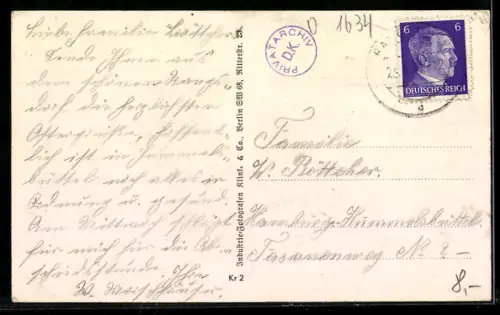 Liebe Familie Böttcher
Sende Ihnen aus
dem schönen
dorf die herzlichsten
Ostergrüsse, hoffent-
lich ist in Hummels-
büttel noch alles in
Ordnung u. gesund.
Am Mittwoch schlägt
für mich für die Ab-
schiedsstunde. Ihre
W.
Industrie-Fotografen Klinke & Co., Berlin SW 68, Ritterstr. 23.
Kr 2
PRIVATARCHIV
D.K.
D 1634
6 6
DEUTSCHES REICH
Familie
W. Böttcher
Hamburg-Hummelsbüttel
No 2
8,-